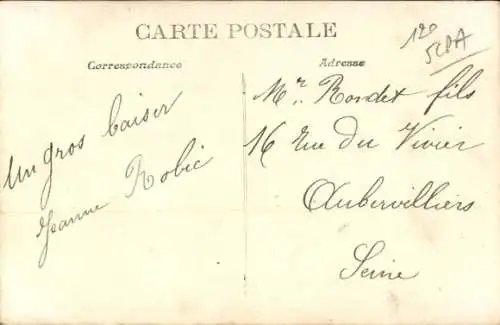 CARTE POSTALE
120
SCPA
Correspondance
Adresse
Un gros baiser
Jeanne Robic
Mr. Rondet fils
16 Rue du Vivier
Aubervilliers
Seine